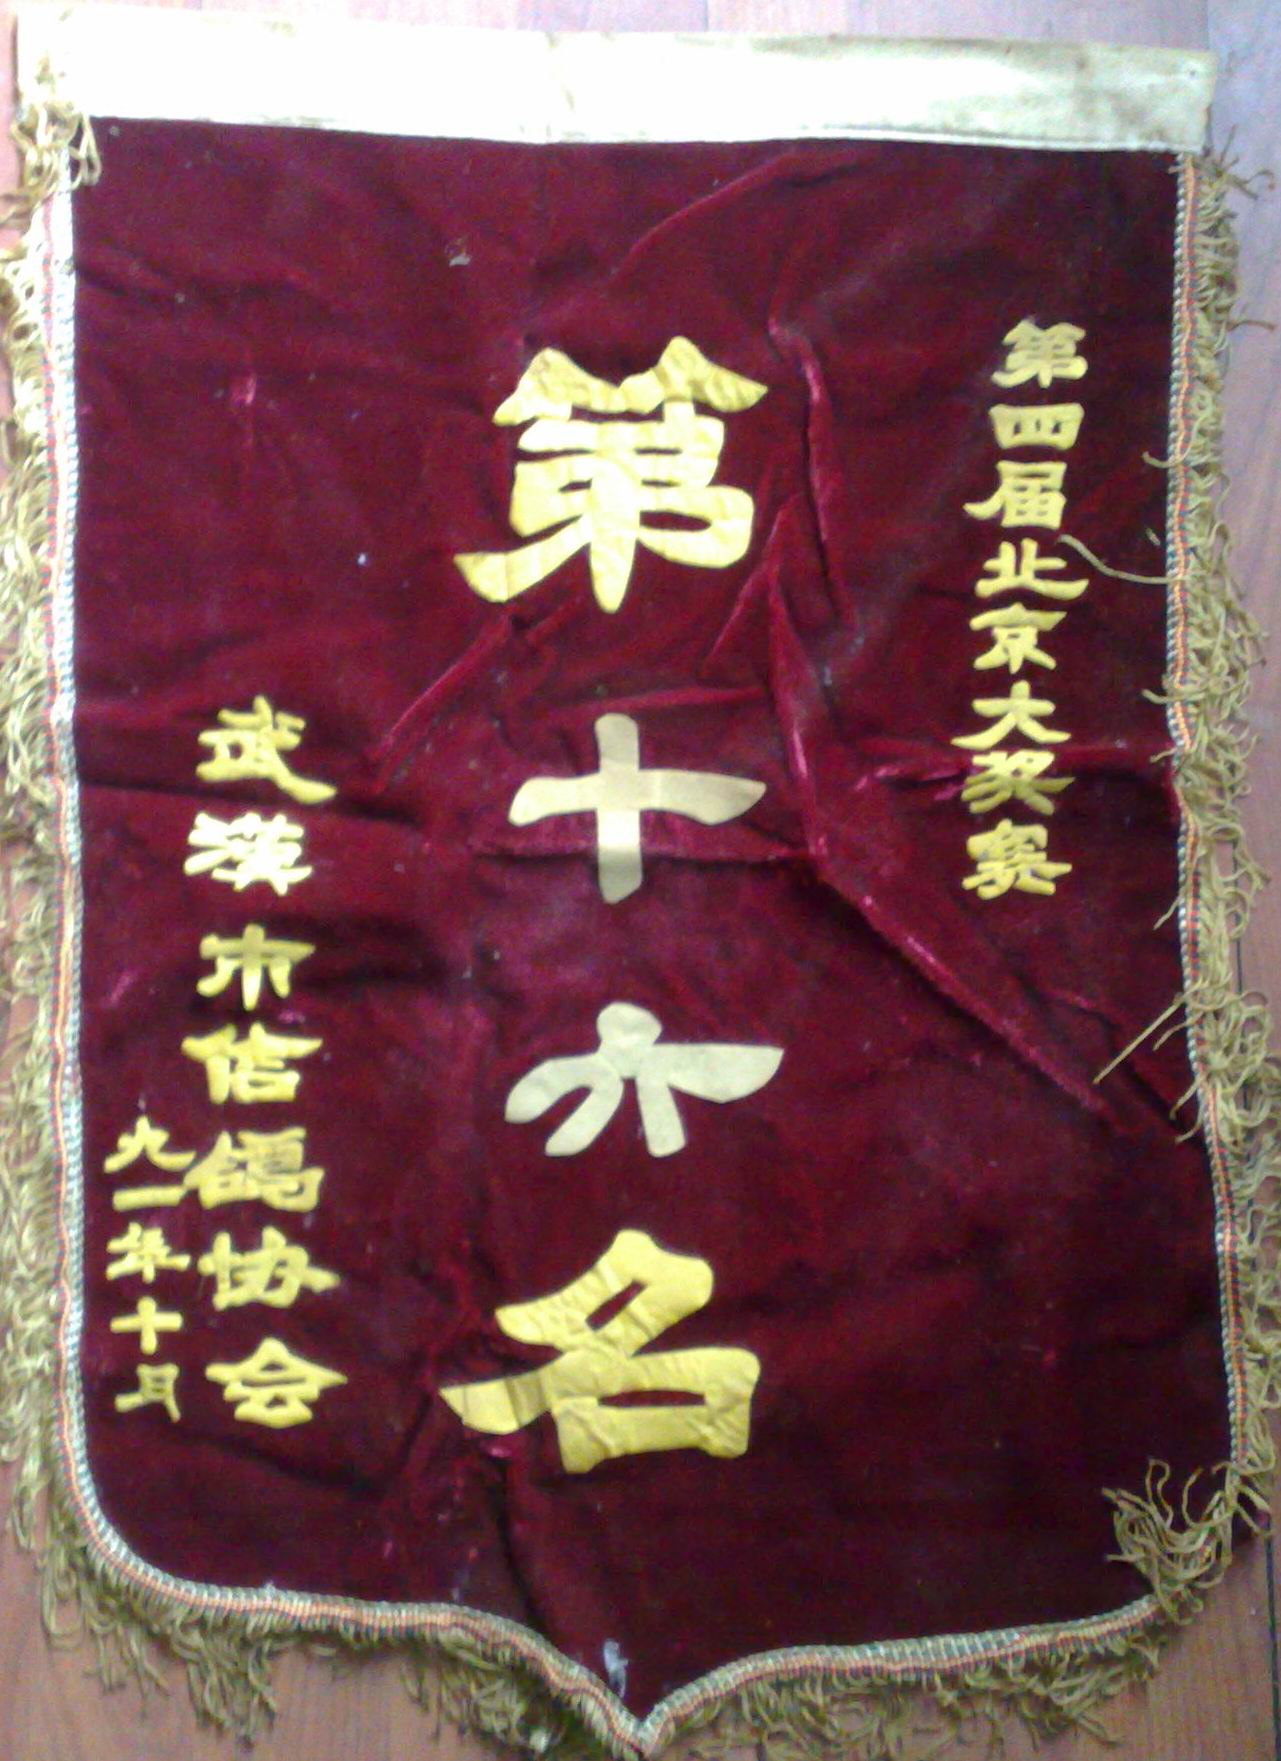 第四届北京大奖赛
第十六名
武漢市信鴿协会
九一年十月